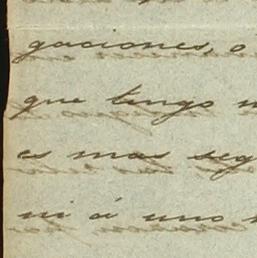 gaciones, o
que tengo
es mas seg
ni á uno